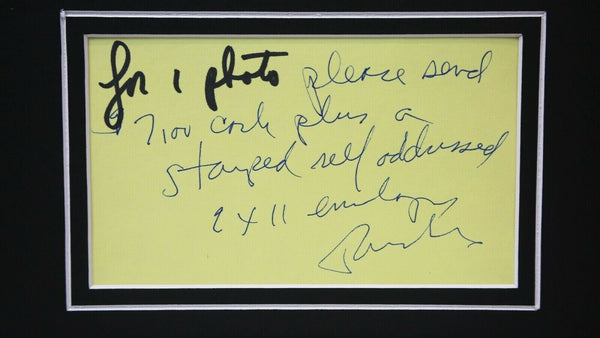 for 1 photo please send
$7.00 cash plus a
stamped self addressed
9 x 11 envelope